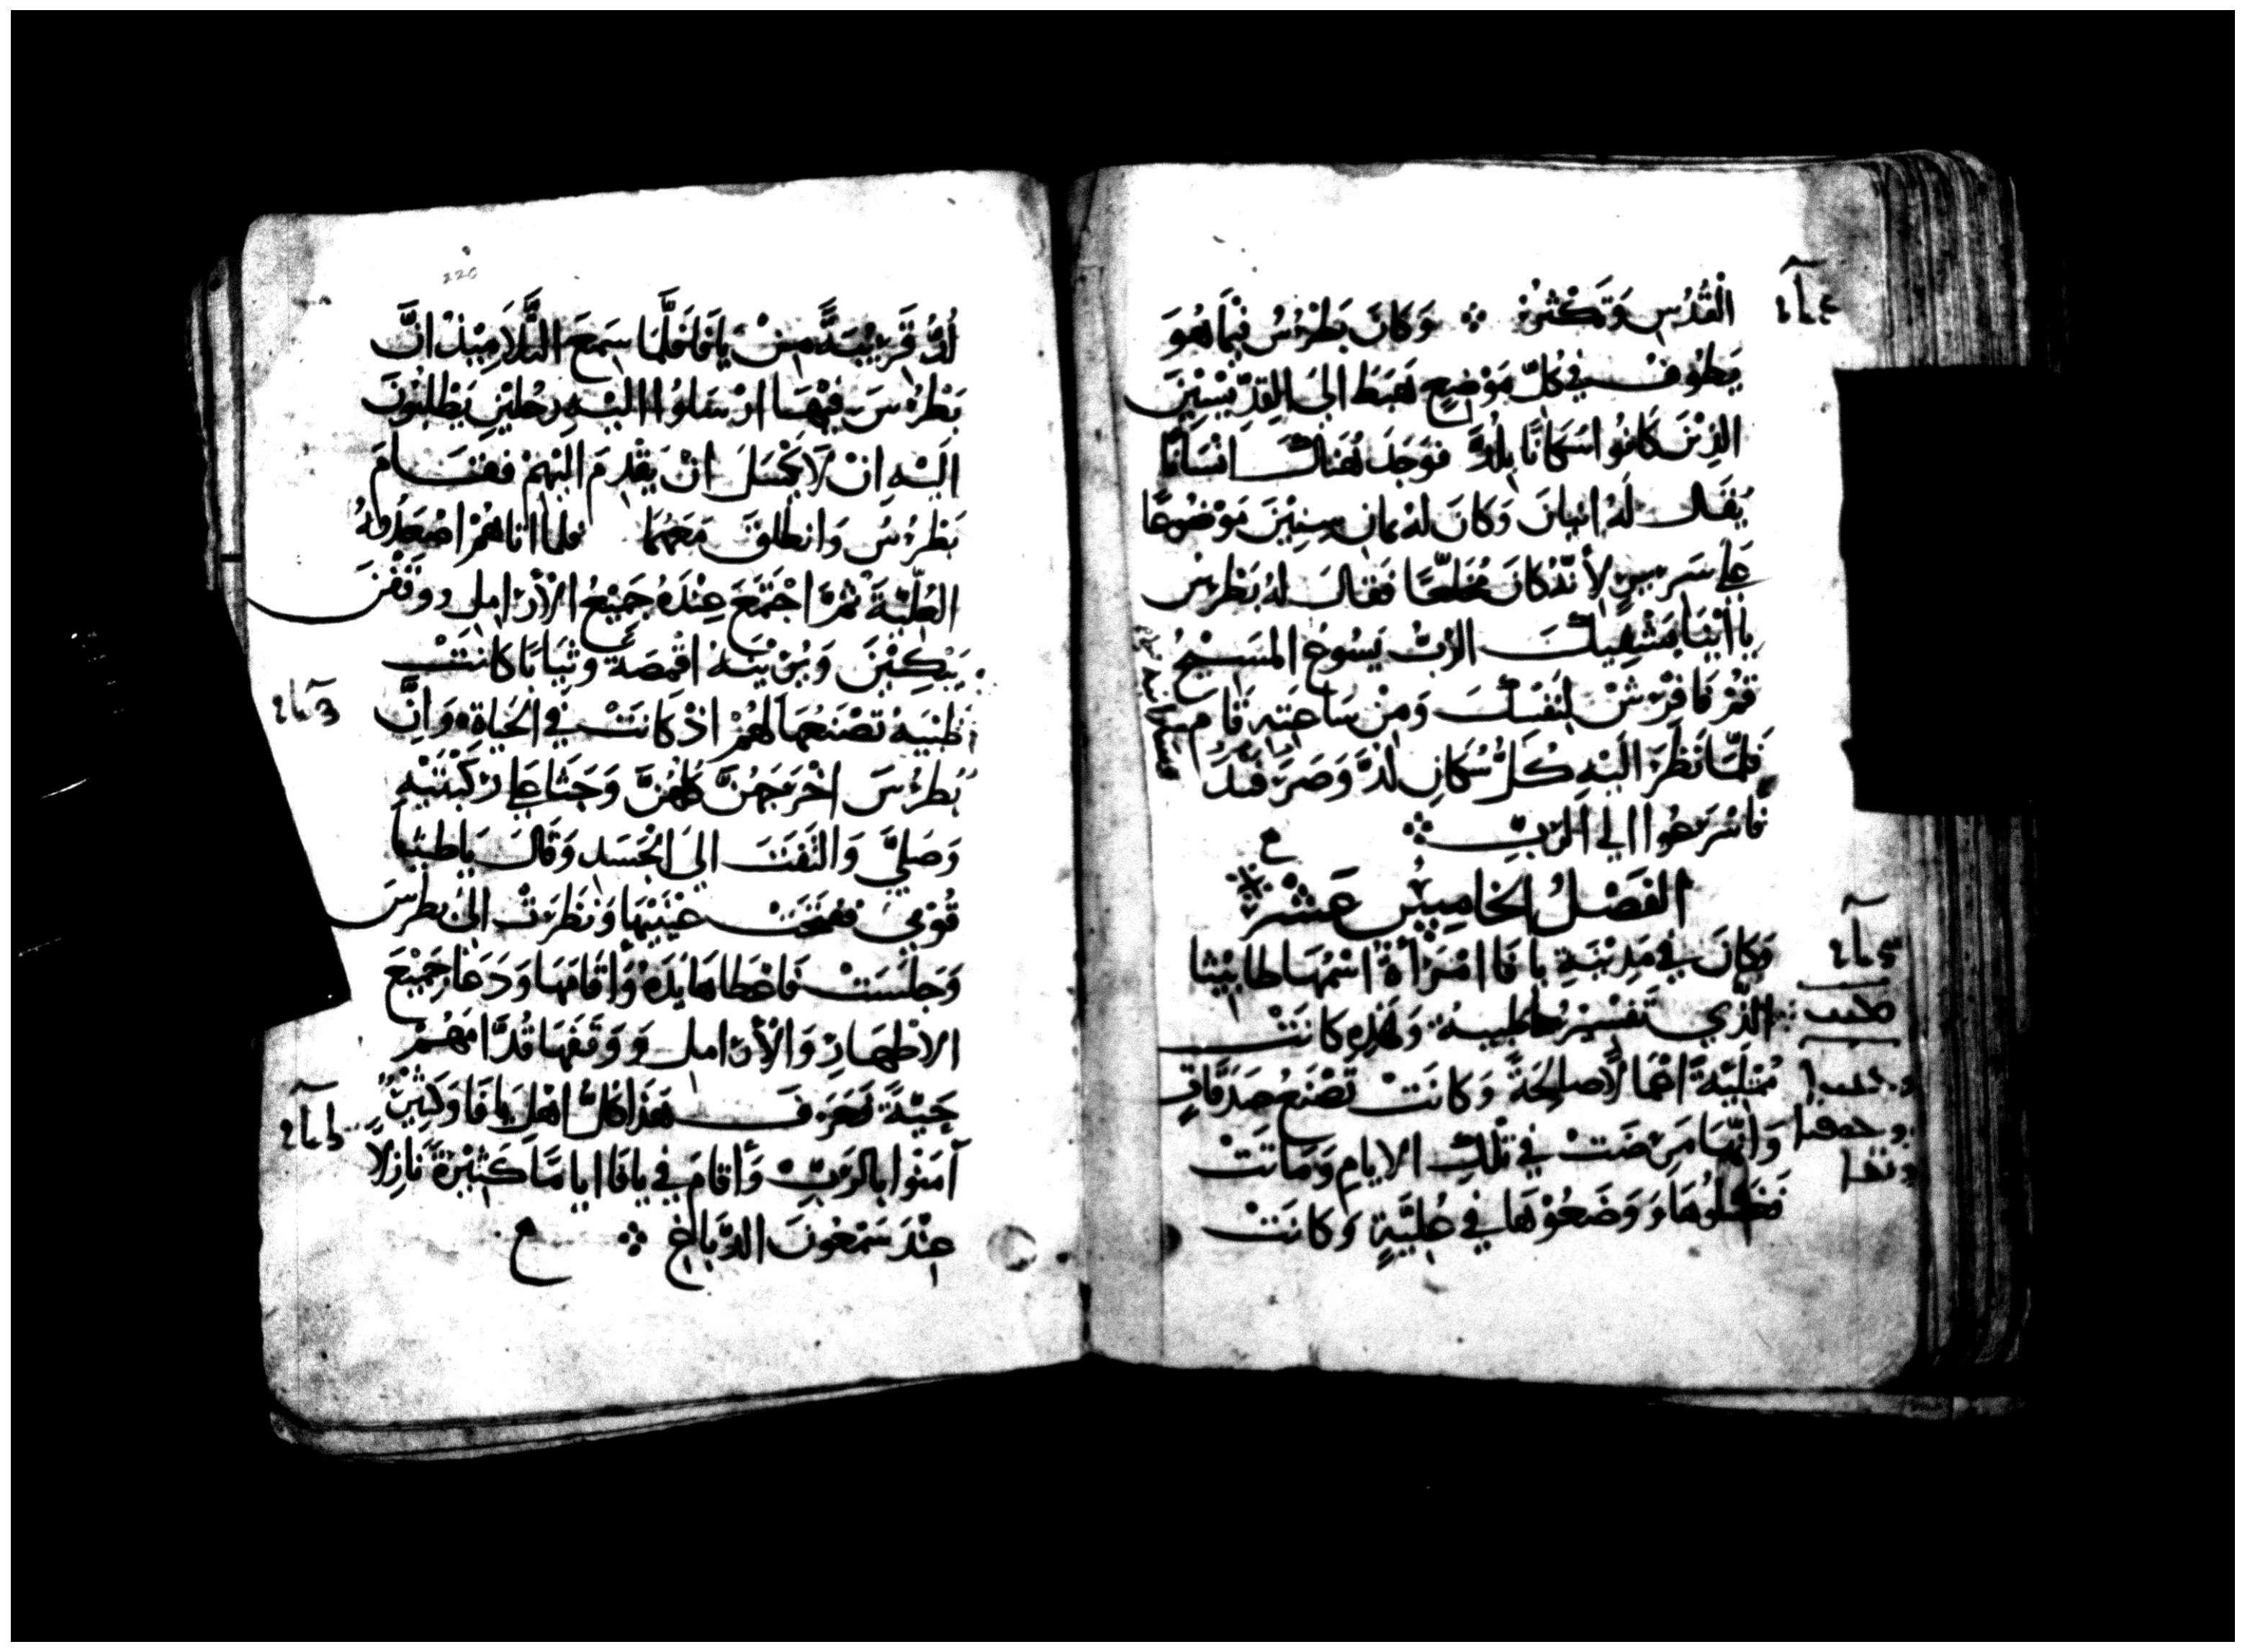 القُدُسِ وَتَكْثُرُ ⁘ وَكَانَ بَطْرُسُ فِيمَا هُوَ
يَطُوف في كُلّ مَوْضِعٍ هَبَطَ الىَ القِدِّيْسِيْنَ
الذِيْنَ كَانُوا سَكَانًا بِلُدَّ فوَجَدَ هُنَاكَ انْسَانًا
يُقَال لَهُ انيان وَكَانَ لهُ ثمان سِنِيْنَ مَوْضُوعًا
عَلي سَرِيرٍ لأَنّهُ كَانَ مُخَلّعًا فَقَالَ لهُ بَطْرس
يا انيَا يَشْفِيكَ الرَبُّ يَسُوعُ المَسِيْحُ
قمْ فَافْرِشْ لنَفْسِكَ وَمِنْ سَاعَتِهِ قَامَ
فَلمّا نَظَرَ اليْهِ كُلُّ سُكَانِ لُدَّ وَصَرَفَنْدَ
فَاسْرَعُوا الي الرَبِّ ⁘
ع
الفَصْلُ الخَامِسُ عَشَرْ
وَكَانَ في مَدِيْنَةِ يافَا امْرَأةٌ اسْمُهَا طابِيْثا
الذّي تَفسِيْرُهَا ظبية وَهَذِهِ كانَتْ
مُمْتَلِيَةً اعْمَالاً صَالِحَةً وَكَانَتْ تَصْنَعُ صَدَقَاتٍ
وَانَّهَا مَرِضَتْ في تْلكَ الايامِ وَمَاتَتْ
فغَسَلُوهَا وَوَضَعُوْهَا في عُلِيَّةٍ وَكانَتْ
220
لُدُّ قَرِيْبَةً مِنْ يَافَا فَلَّمَا سَمِعَ التَّلاَمِيْذُ انَّ
بَطْرُسَ فِيْهَا ارْسَلوُا اليْهِ رَجُليْنِ يَطْلبُونَ
اليْهِ انْ لاَ يَكْسَلَ انْ يَقْدِمَ اليْهِمْ فقَامَ
بَطْرُسُ وَانطَلَقَ مَعَهُمَا فلما اتاهُمْ اصْعَدُوهُ
العُلِّيَّةَ ثمْرَ اجْتَمَعَ عِنْدَهُ جَمِيْعُ الأرَامِلِ ووَقَفْنَ
يَبْكِيْنَ وَيُرِيْنَهُ اقْمِصَةً وَثِيَابًا كَانَتْ
ظبْيَةُ تَصْنَعُهَا لهُمْ اذْ كَانَتْ في الحَيَاةِ وَانَّ
بُطرُسَ اخْرَجَهُنَّ كُلهُنَّ وَجَثَا عَلي رُكْبَتَيْهِ
وَصَليَّ وَالتَفَتَ الي الجَسَدِ وَقَالَ يَا طَبيْثا
قُوْمِي ففتَحَتْ عَيْنَيْهَا وَنظَرَتْ الىَ بطرسَ
وَجلَسَتْ فَاعْطاهَا يَدَهُ وَأقَامَهَا وَدَعَا جَمِيْعَ
الاطْهَارِ وَالأرَامِلِ وَوَقَفهَا قُدَّامَهُمْ
حَيَّةً فعَرَفَ هَذَا كُلُّ اهْلِ يَافَا وَكَثِيْرٌ
آمَنُوا بالرَبِّ وَأقامَ في يافَا ايامًا كَثِيْرَةً نازِلاً
عِنْدَ سَمْعُونَ الدَّبَاغِ ⁘ ع